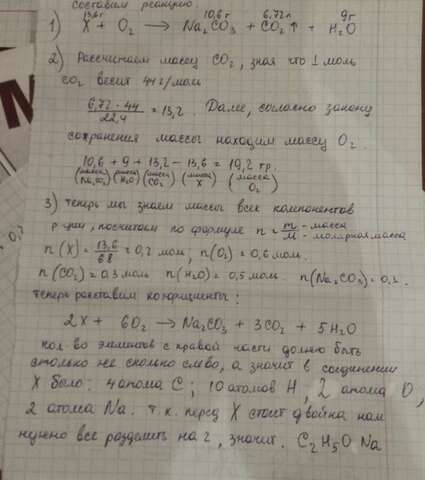 составим реакцию.
13,6 г 10,6 г 6,72 л 9 г
1) X + O₂ → Na₂CO₃ + CO₂↑ + H₂O
2) Рассчитаем массу CO₂, зная что 1 моль
CO₂ весит 44 г/моль
6,72 · 44 / 22,4 = 13,2. Далее, согласно закону
сохранения массы находим массу O₂.
10,6 + 9 + 13,2 − 13,6 = 19,2 гр.
(масса Na₂CO₃) (масса H₂O) (масса CO₂) (масса X) (масса O₂)
3) теперь мы знаем массы всех компонентов
р-ции, посчитаем по формуле n = m - масса / M - молярная масса
n(X) = 13,6 / 68 = 0,2 моль, n(O₂) = 0,6 моль.
n(CO₂) = 0,3 моль n(H₂O) = 0,5 моль. n(Na₂CO₃) = 0,1.
теперь расставим коэффициенты:
2X + 6O₂ → Na₂CO₃ + 3CO₂ + 5H₂O
кол-во элементов с правой части должно быть
столько же сколько слево, а значит в соединении
X было: 4 атома C; 10 атомов H, 2 атома O,
2 атома Na. т.к. перед X стоит двойка нам
нужно все разделить на 2, значит. C₂H₅O Na